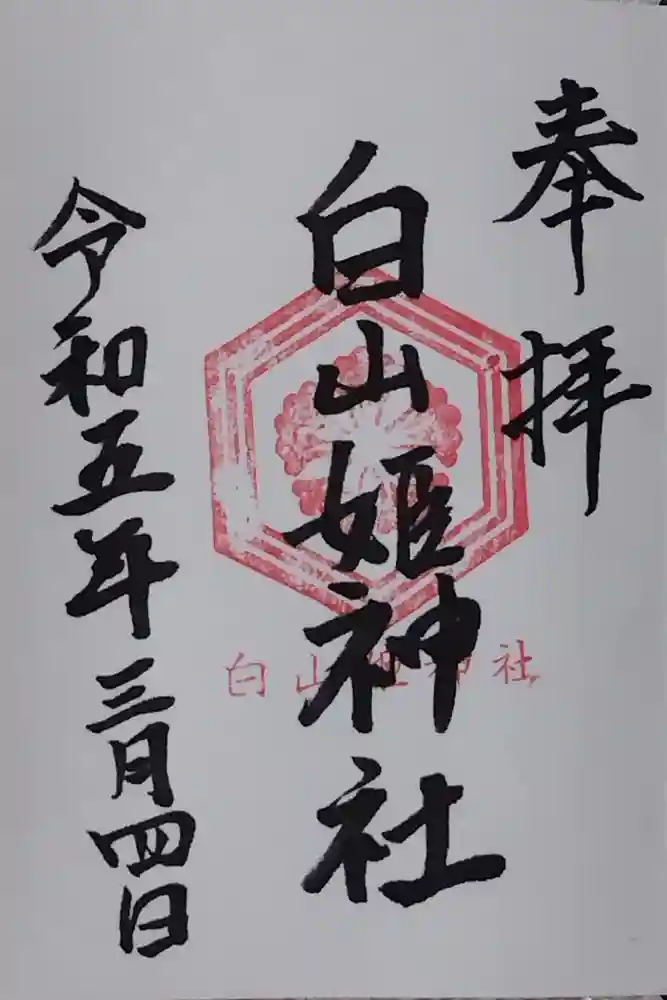 奉拝
白山姫神社
白山姫神社
令和五年三月四日